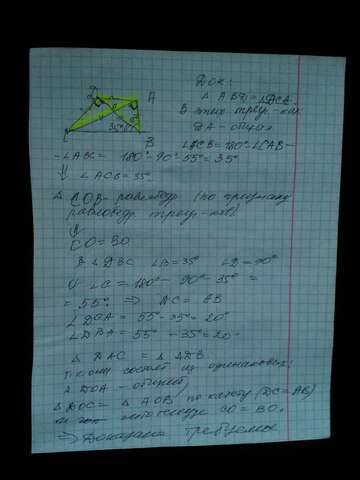 Д
A
C
35°
B
Док:
В этих треуг-ках
DA - общая
∠ACB = 180° - ∠CAB -
- ∠ABC = 180° - 90° - 55° = 35°
⇓ ∠ACB = 35°
Δ COB - равнобедр. (по признаку
равнобедр. треуг-ков)
⇓
CO = BO
В ΔDBC ∠B = 35° ∠D = 90°
∠C = 180° - 90° - 35° =
= 55° ⇒
∠DCA = 55 - 35 = 20°
∠DBA = 55 - 35 = 20
Δ DAC = Δ ADB
т.к они состоят из одинаковых:
Δ DOA - общий,
Δ DOC = Δ AOB по катету (DC = AB)
гипотенузе CO = BO.
⇒ Доказали требуемое